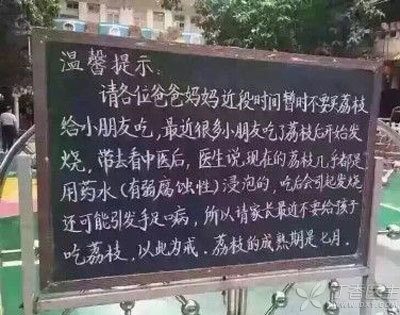 温馨提示:
请各位爸爸妈妈近段时间暂时不要买荔枝
给小朋友吃，最近很多小朋友吃了荔枝后开始发
烧，带去看中医后，医生说，现在的荔枝几乎都是
用药水(有弱腐蚀性)浸泡的，吃后会引起发烧
还可能引发手足口病，所以请家长最近不要给孩子
吃荔枝，以此为戒．荔枝的成熟期是七月．